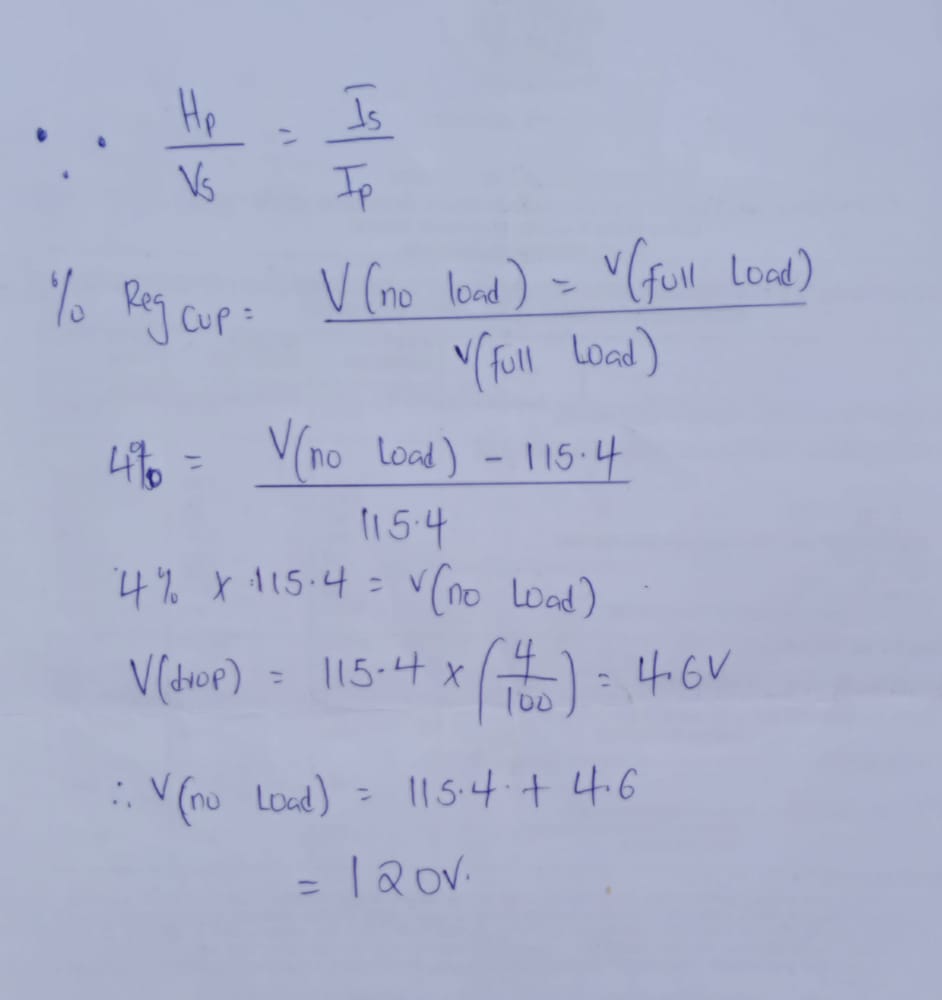 ∴ Hp/Vs = Is/Ip
% Reg cup = V(no load) = V(full Load) / V(full Load)
4% = V(no Load) - 115.4 / 115.4
4% x 115.4 = V(no Load)
V(drop) = 115.4 x (4/100) = 4.6V
∴ V(no Load) = 115.4 + 4.6
= 120V.